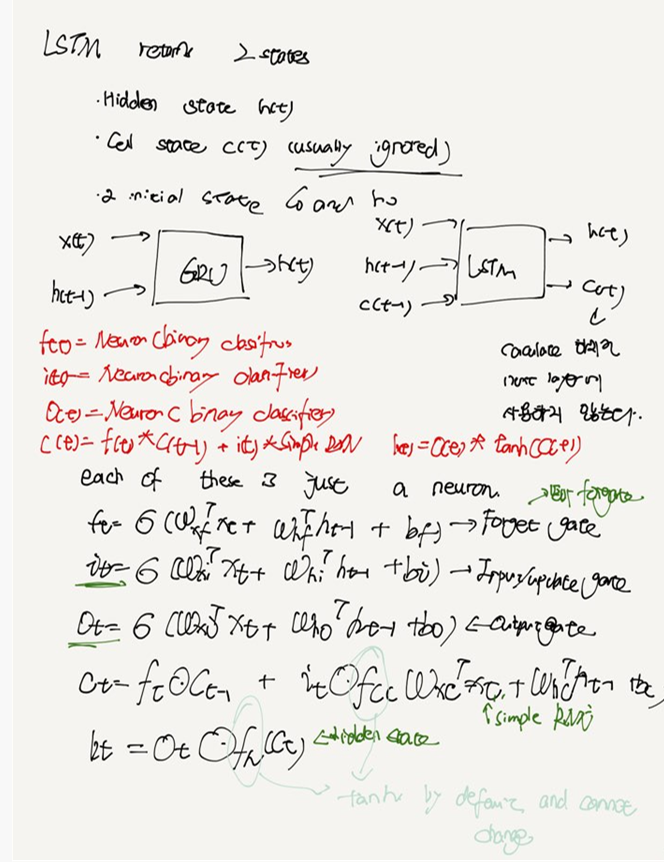 LSTM returns 2 states
· Hidden state h(t)
· Cell state c(t) (usually ignored)
· 2 initial state C0 and h0
x(t)
h(t-1)
GRU
h(t)
x(t)
h(t-1)
c(t-1)
LSTM
h(t)
c(t)
calculate
layer
f(t) = Neuron (binary classifier
i(t) = Neuron (binary classifier)
O(t) = Neuron (binary classifier)
C(t) = f(t) * C(t-1) + i(t) * Simple RNN
h(t) = O(t) * tanh(C(t))
each of these is just a neuron.
forget
ft = σ(Wxf^T xt + Whf^T ht-1 + bf) → Forget gate
it = σ(Wxi^T xt + Whi^T ht-1 + bi) → Input/update gate
Ot = σ(Wxo^T xt + Who^T ht-1 + bo) ← Output gate
Ct = ft ⊙ Ct-1 + it ⊙ fc(Wxc^T xt + Whc^T ht-1 + bc)
↑ simple RNN
ht = Ot ⊙ fh(Ct) ← hidden state
tanh by default and cannot
change